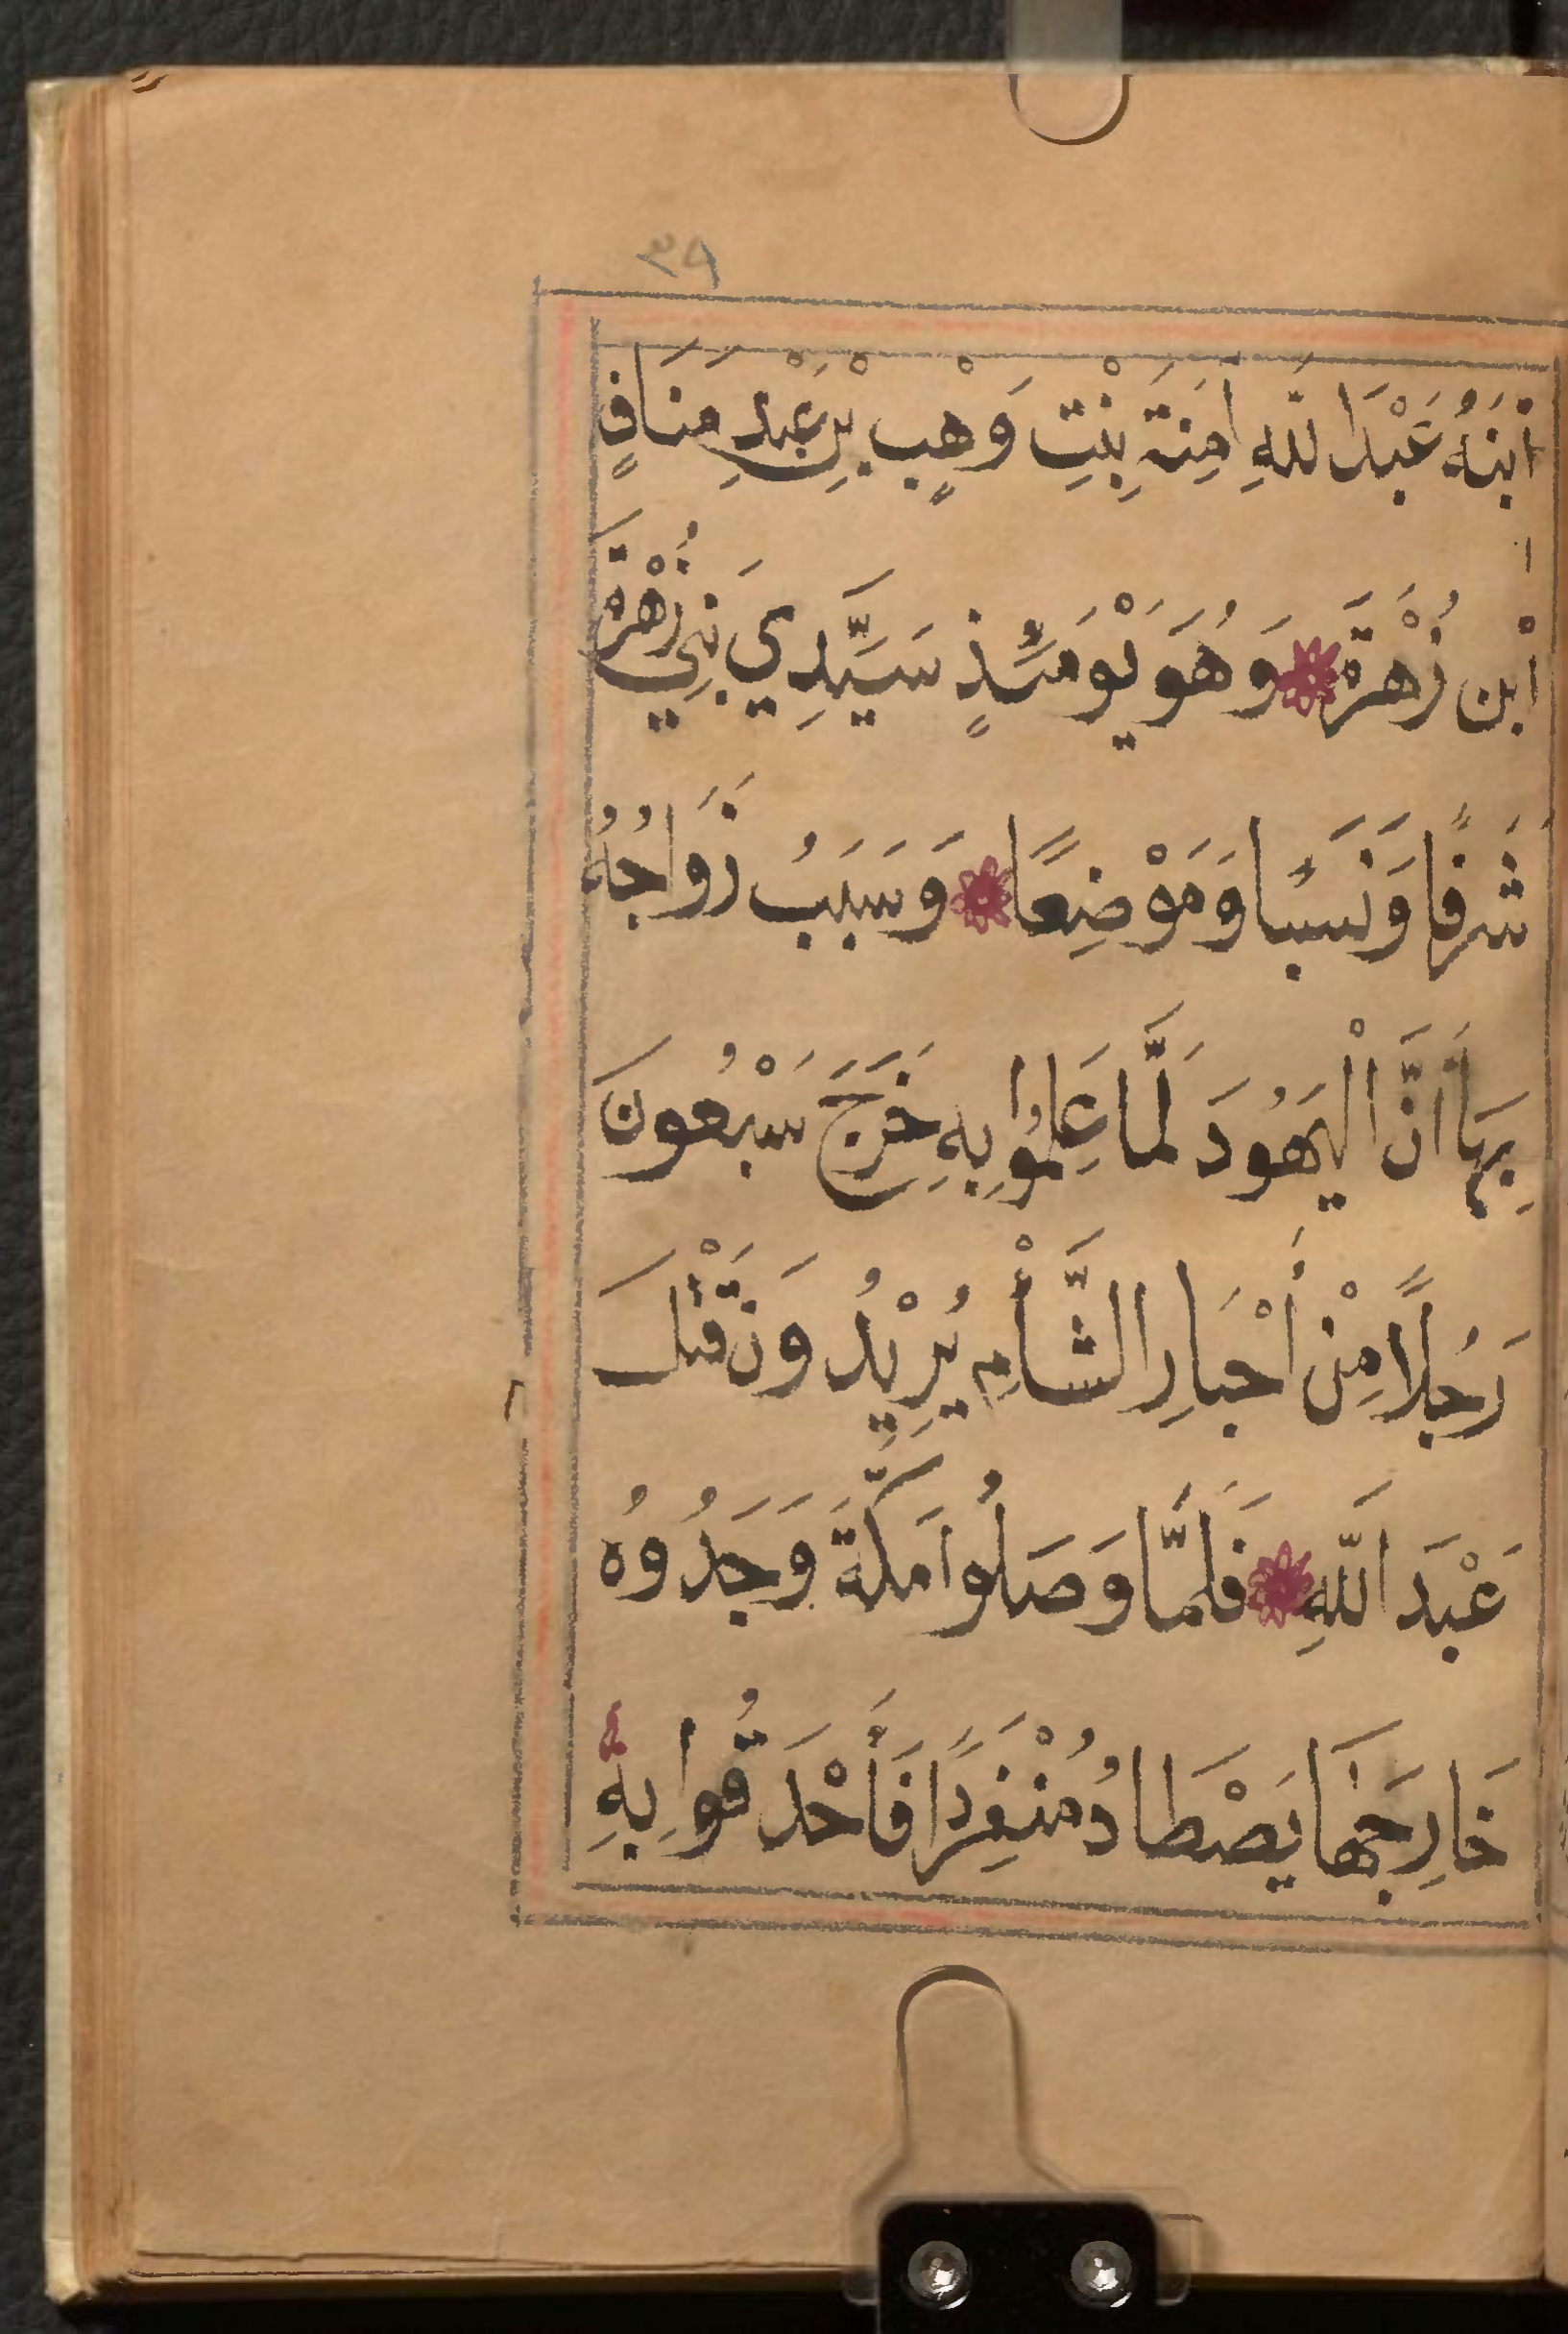 ٣٩
ابْنَهُ عَبْدَ اللّٰهِ اٰمِنَةَ بِنْتِ وَهْبٍ بْنِ عَبْدِ مَنَافٍ
ابْن زُهْرَةَ وَهُوَ يَوْمَئِذٍ سَيَّدِي بَنِي زُهْرَةَ
شَرَفًا وَنَسَبًا وَمَوْضِعًا وَسَبَبُ زَوَاجُهُ
بِهَا أَنَّ الْيَهُودَ لَمَّا عَلِمُوا بِهِ خَرَجَ سَبْعُونَ
رَجُلًا مِنْ أَحْبَارِ الشَّأْمِ يُرِيْدُونَ قَتْلَ
عَبْدَ اللّٰهِ فَلَمَّا وَصَلُوا مَكَّةَ وَجَدُوهُ
خَارِجَهَا يَصْطَادُ مُنْفَرِدًا فَأَحْدَقُوا بِهِ